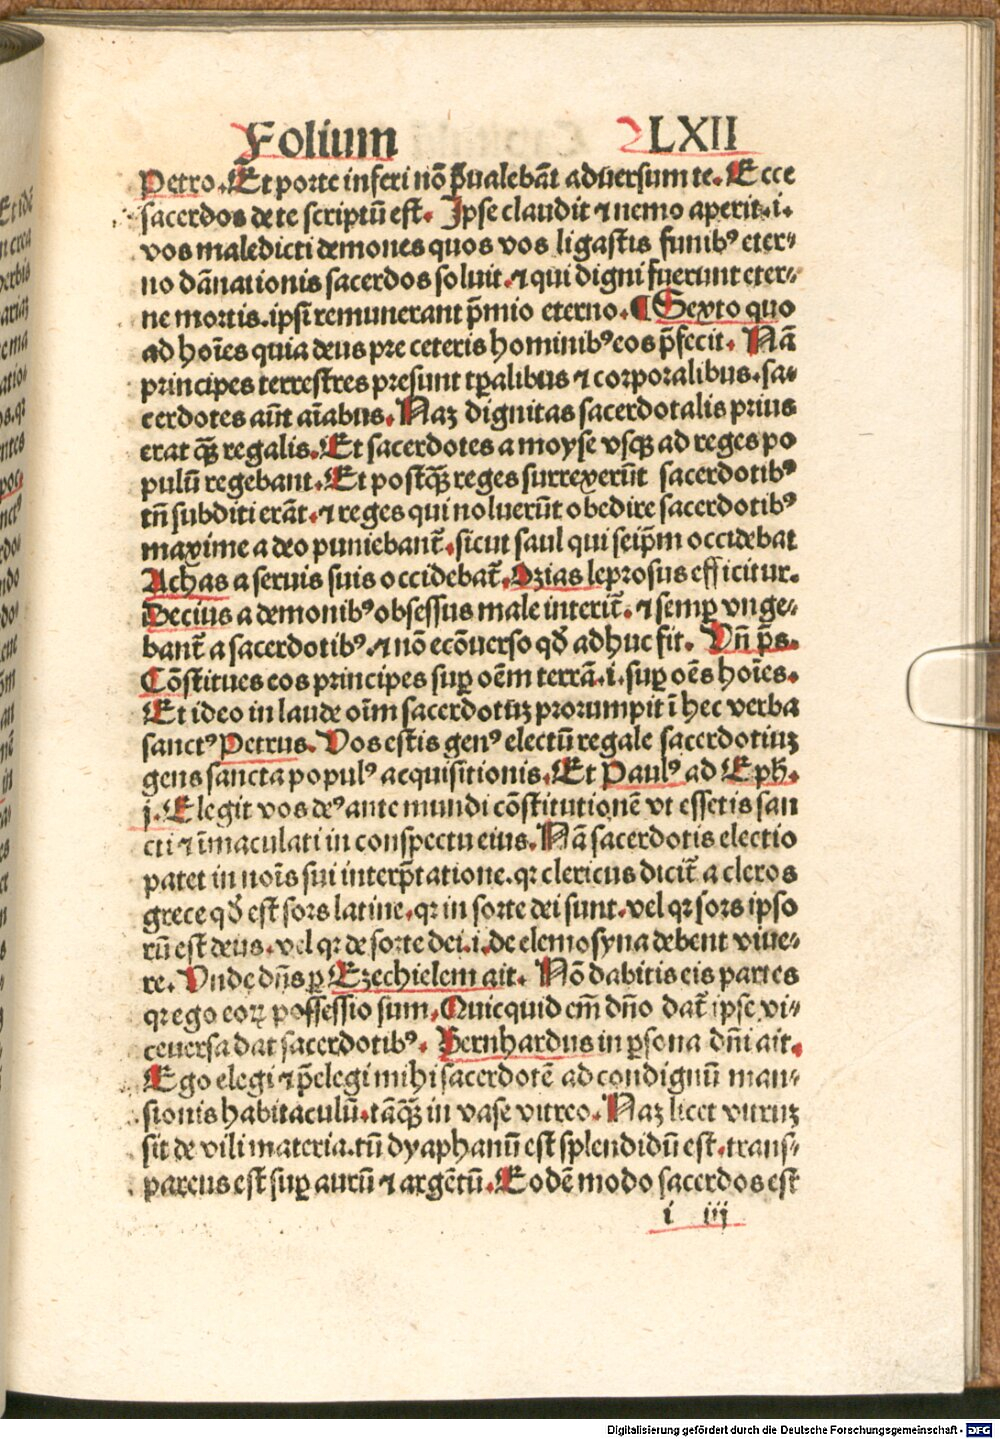 Folium LXII
Petro. Et porte inferi nō p̄ualebāt aduersum te. Ecce
sacerdos de te scriptū est. Ipse claudit ⁊ nemo aperit. i.
vos maledicti demones quos vos ligastis funibꝰ eter⸗
no dānationis sacerdos soluit. ⁊ qui digni fuerunt eter⸗
ne mortis. ipsi remunerant p̄mio eterno. ¶ Sexto quo
ad hoīes quia deus pre ceteris hominibꝰ eos p̄fecit. Nā
principes terrestres presunt tꝑalibus ⁊ corporalibus. sa⸗
cerdotes aūt aīabus. Naꝫ dignitas sacerdotalis prius
erat qᷓꝫ regalis. Et sacerdotes a moyse vsqꝫ ad reges po
pulū regebant. Et postqᷓꝫ reges surrexerūt sacerdotibꝰ
tn̄ subditi erāt. ⁊ reges qui noluerūt obedire sacerdotibꝰ
maxime a deo puniebant᷑. sicut saul qui seip̄m occidebat
Achas a seruis suis occidebat᷑. Ozias leprosus efficitur.
Decius a demonibꝰ obsessus male interit᷑. ⁊ semꝑ vnge⸗
bant᷑ a sacerdotibꝰ. ⁊ nō ecōuerso qd̄ adhuc fit. Vn̄ p̄s.
Cōstitues eos principes suꝑ oēm terrā. i. suꝑ oēs hoīes.
Et ideo in laude oīm sacerdotūꝫ prorumpit ī hec verba
sanctꝰ Petrus. Vos estis genꝰ electū regale sacerdotiuꝫ
gens sancta populꝰ acquisitionis. Et Paulꝰ ad Eph̄.
j. Elegit vos deꝰ ante mundi cōstitutionē vt essetis san
cti ⁊ īmaculati in conspectu eius. Nā sacerdotis electio
patet in noīs sui interp̄tatione. qꝛ clericus dicit᷑ a cleros
grece qd̄ est sors latine. qꝛ in sorte dei sunt. vel qꝛ sors ipso
rū est deus. vel qꝛ de sorte dei. i. de elemosyna debent viue⸗
re. Vnde dn̄s ꝑ Ezechielem ait. Nō dabitis eis partes
qꝛ ego eoꝝ possessio sum. Quicquid em̄ dn̄o dat᷑ ipse vi⸗
ceuersa dat sacerdotibꝰ. Bernhardus in ꝑsona dn̄i ait.
Ego elegi ⁊ p̄elegi mihi sacerdotē ad condignū man⸗
sionis habitaculū. tāqᷓꝫ in vase vitreo. Naꝫ licet vitruꝫ
sit de vili materia. tū dyaphanū est splendidū est. trans⸗
parens est suꝑ aurū ⁊ argētū. Eodē modo sacerdos est
i iij
Digitalisierung gefördert durch die Deutsche Forschungsgemeinschaft - DFG